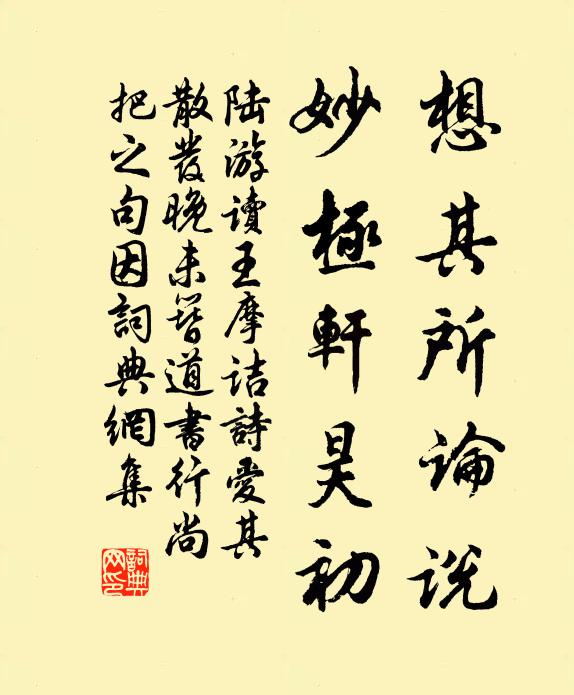 想其所论说
妙極軒昊初
陆游讀王摩诘詩愛其
散發晚未簪道書行尚
把之句因詞典網集
詞典網印